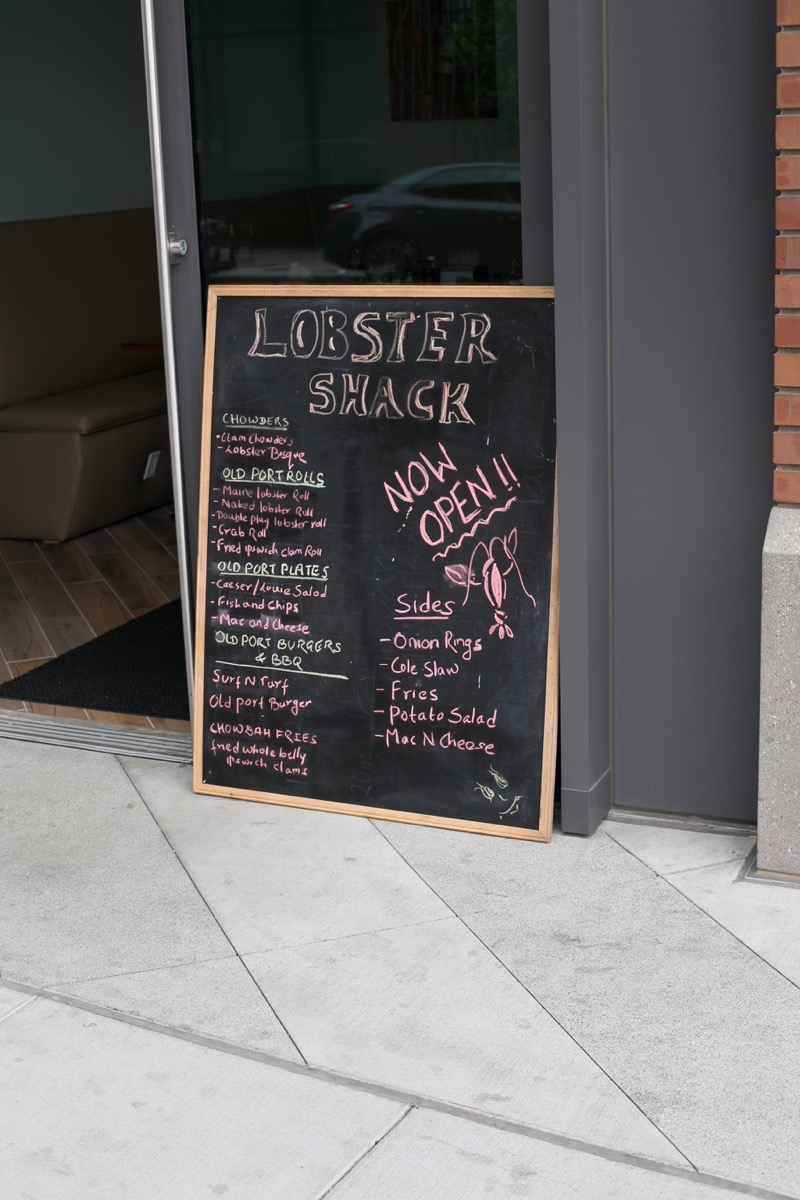 LOBSTER
SHACK
CHOWDERS
- Clam Chowders
- Lobster Bisque
OLD PORT ROLLS
- Maine lobster Roll
- Naked lobster Roll
- Double play lobster roll
- Crab Roll
- Fried ipswich clam Roll
OLD PORT PLATES
- Caeser/Louie Salad
- Fish and Chips
- Mac and Cheese
OLD PORT BURGERS
& BBQ
Surf N Turf
Old port Burger
CHOWDAH FRIES
fried whole belly
ipswich clams
NOW
OPEN!!
Sides
- Onion Rings
- Cole Slaw
- Fries
- Potato Salad
- Mac N Cheese